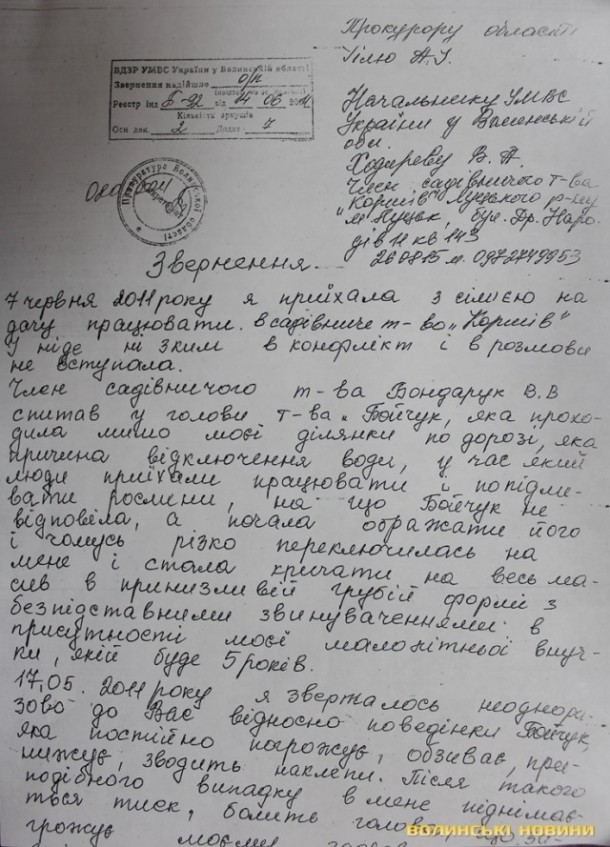 Прокурору області
Гілю А.І.
ВДЗР УМВС України у Волинській області
Звернення надійшло о/п
Реєстр інд Б-92 від 14 06 2011
Кількість аркушів
Осн док. 2 Додат. 7
Начальнику УМВС
України у Волинській
обл.
Ходареву В. А.
Член садівничого т-ва
"Коршів" Луцького р-ну
м Луцьк, бул. Др. Наро-
дів 11 кв 143
260815 м. 0972749953
Прокуратура Волинської області
Звернення.
7 червня 2011 року я приїхала з сім'єю на
дачу працювати. в садівниче т-во „Коршів"
У ніде ні з ким в конфлікт і в розмови
не вступала.
Член садівничого т-ва Бондарук В.В
спитав у голови т-ва „ Бойчук, яка прохо-
дила мимо моєї ділянки по дорозі, яка
причина відключення води, у час який
люди приїхали працювати й попідли-
вати рослини, на що Бойчук не
відповіла, а почала ображати його
і чомусь різко переключилась на
мене і стала кричати на весь ма-
сив в принизливій грубій формі з
безпідставними звинуваченнями в
присутності моєї малолітньої внуч-
ки, якій буде 5 років.
17.05. 2011 року я звергалось неоднора-
зово до Вас відносно поведінки Бойчук,
яка постійно погрожує, обзиває, при-
нижує, зводить наклепи. Після такого
подібного випадку в мене піднімає-
ться тиск, болить голова, що за-
грожує моєму
волинські новини